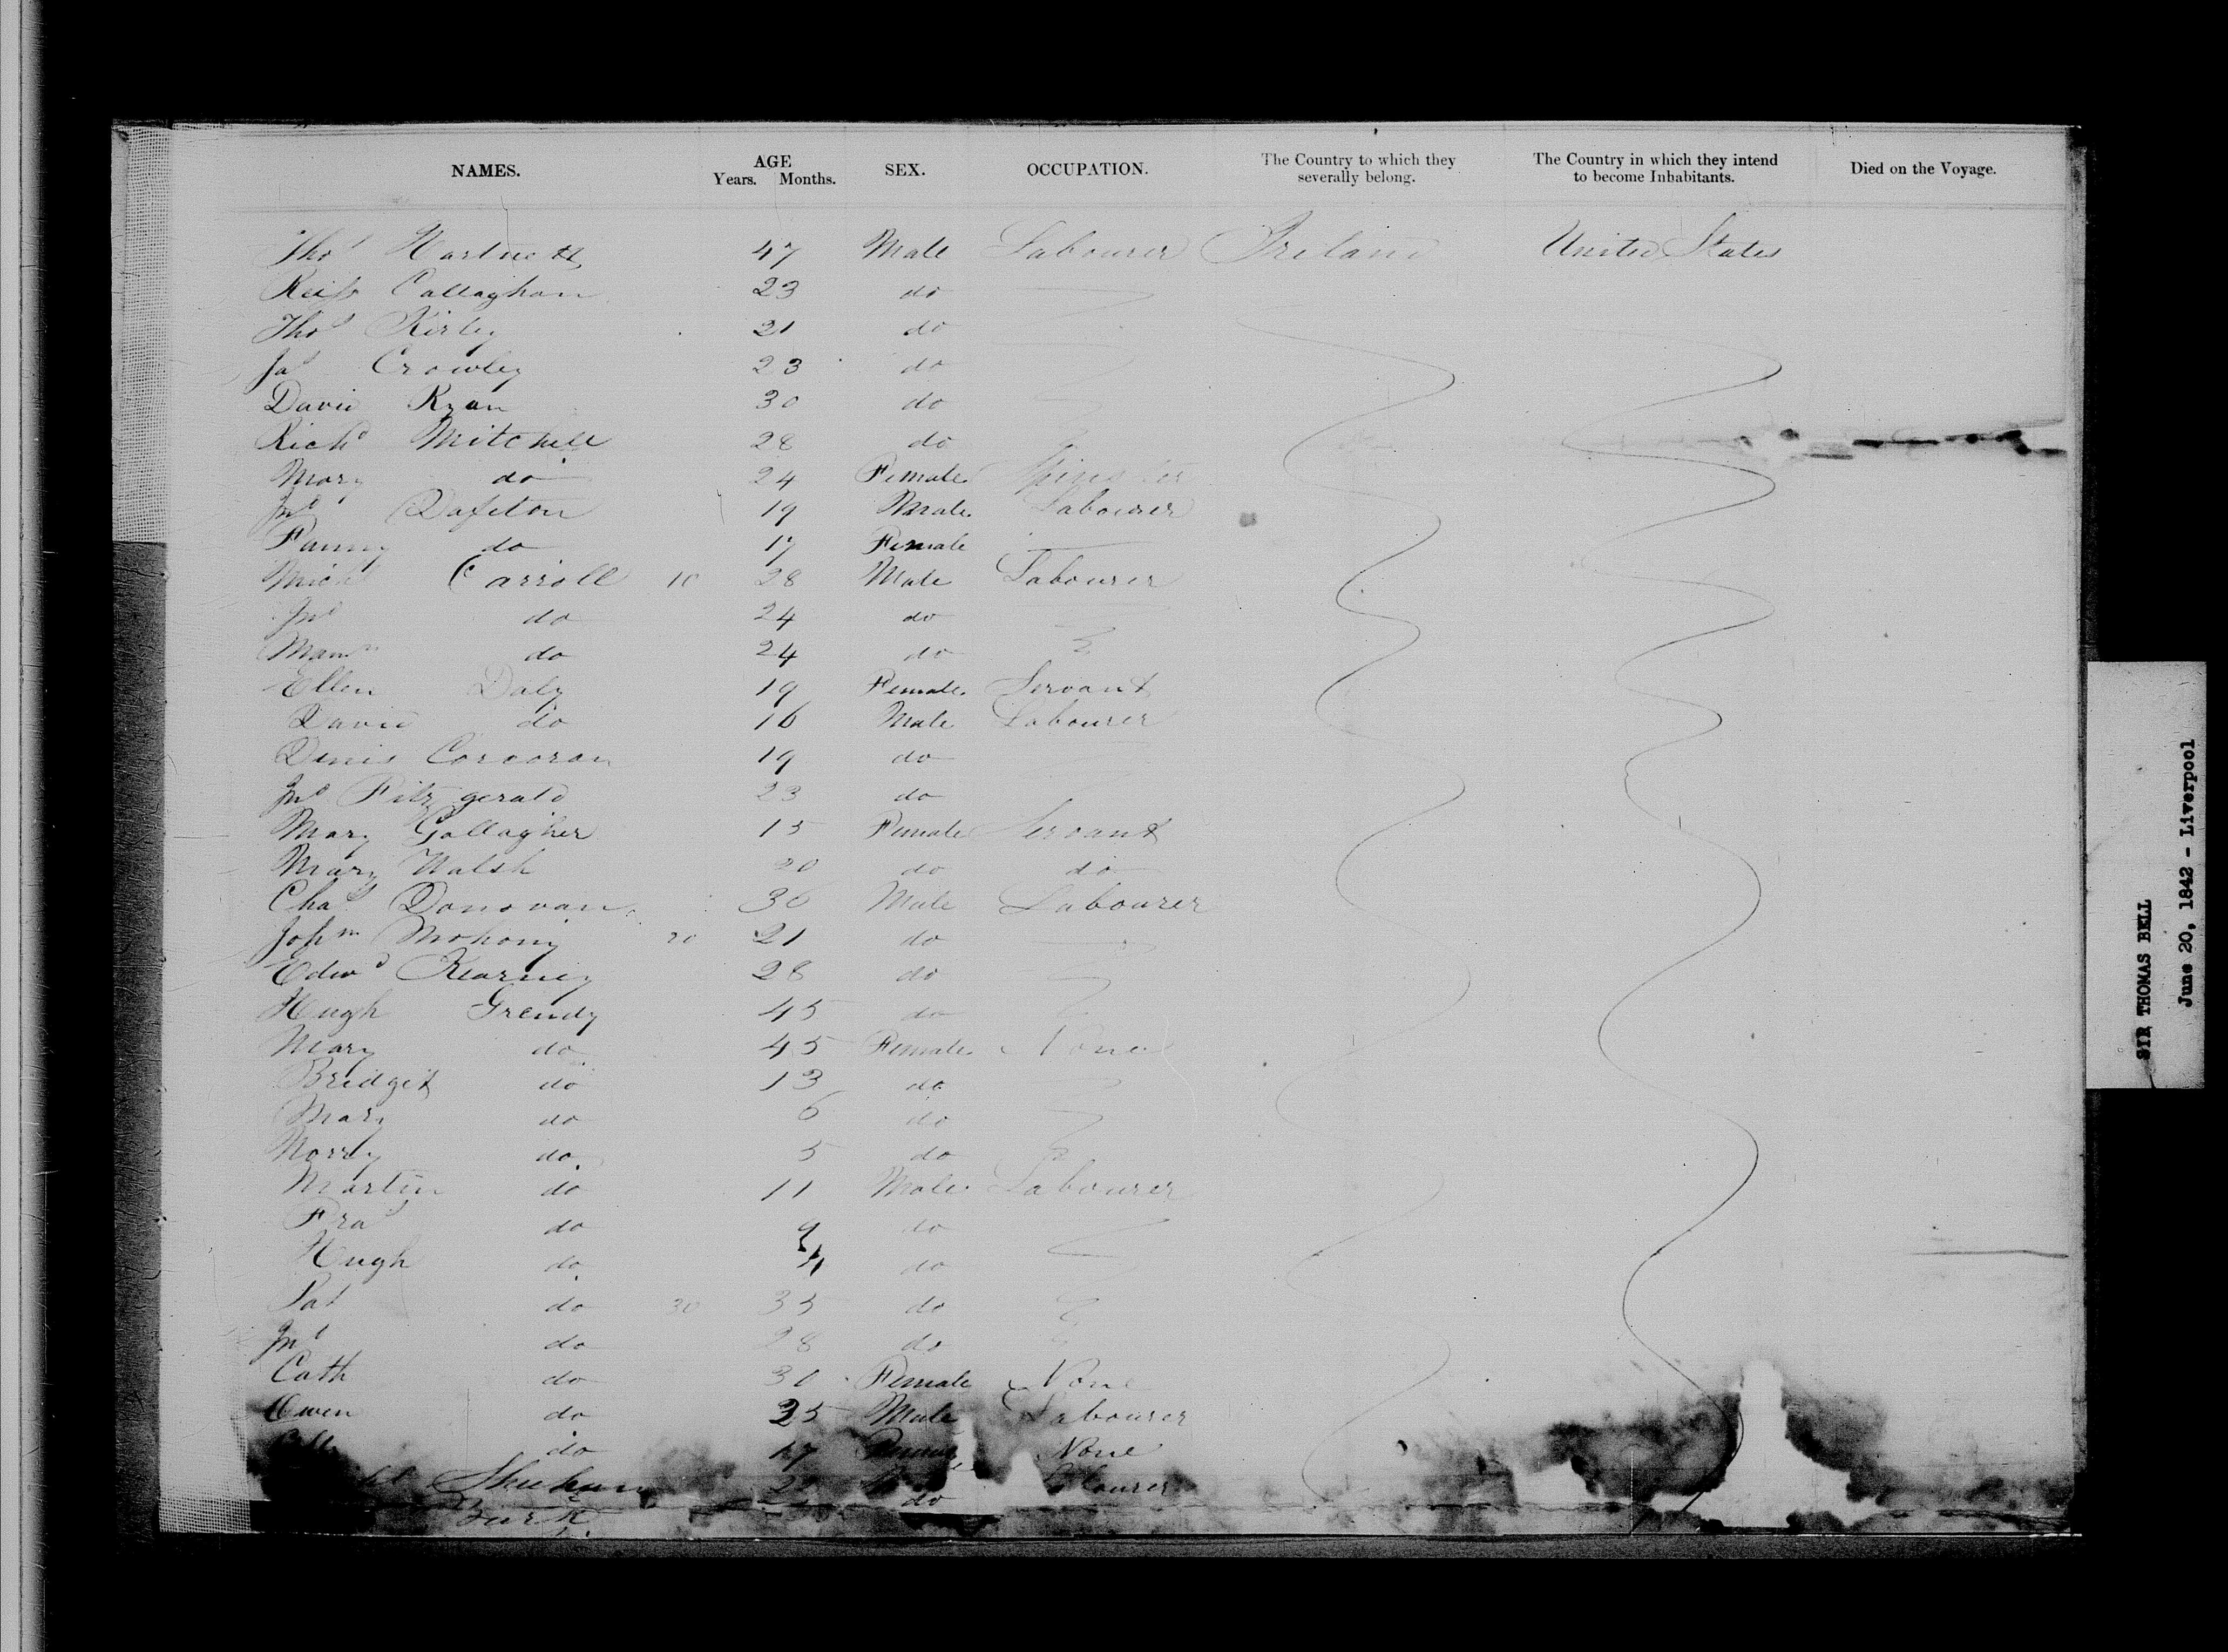 NAMES. AGE Years. Months. SEX. OCCUPATION. The Country to which they severally belong. The Country in which they intend to become Inhabitants. Died on the Voyage.
Thos Hartnett 47 Male Labourer Ireland United States
Callaghan 23 do
Thos Kirby 21 do
Jas Crowley 23 do
David Ryan 30 do
Richd Mitchell 28 do
Mary do 24 Female Spinster
Jno 19 Male Labourer
Fanny do 17 Female
Michl Carroll 10 28 Male Labourer
Jno do 24 do
do 24 do
Ellen Daly 19 Female Servant
David do 16 Male Labourer
Denis Corcoran 19 do
Jno Fitzgerald 23 do
Mary Gallagher 15 Female Servant
Mary Walsh 20 do do
Chas Donovan 36 Male Labourer
Mohony 20 21 do
Edwd Kearney 28 do
Hugh Grendy 45 do
Mary do 45 Female None
Bridget do 13 do
Mary do 6 do
Norry do 5 do
Martin do 11 Male Labourer
Fras do 9 do
Hugh do 4 do
Pat do 30 35 do
Jno do 28 do
Cath do 30 Female None
Owen do 25 Male Labourer
do 17 None
Shuhan Labourer
Burk do
SIR THOMAS BELL
June 20, 1842 - Liverpool